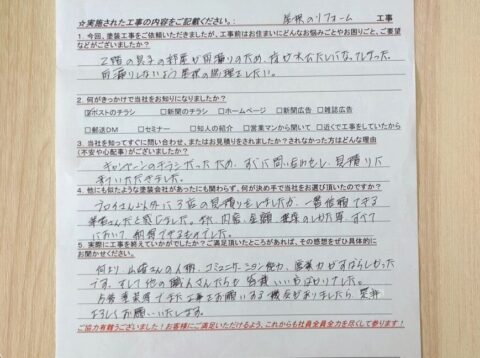 ☆実施された工事の内容をご記載ください。: 屋根のリフォーム 工事
1. 今回、塗装工事をご依頼いただきましたが、工事前はお住まいにどんなお悩みごとやお困りごと、ご要望
などがございましたか?
2階の息子の部屋が雨漏りのため、夜が
雨漏りしないよう屋根の修理をしたい。
2. 何がきっかけで当社をお知りになりましたか?
☑ポストのチラシ □新聞のチラシ □ホームページ □新聞広告 □雑誌広告
□郵送DM □セミナー □知人の紹介 □営業マンから聞いて □近くで工事をしていたから
3. 当社を知ってすぐに問い合わせ、またはお見積りをされましたか?されなかった方はどんな理由
(不安や心配事)がございましたか?
キャンペーンのチラシだったため、すぐに問い合わせし、見積りに
来ていただきました。
4. 他にも似たような塗装会社があったにも関わらず、何が決め手で当社をお選び頂いたのですか?
以外に3店の見積りをしましたが、一番信頼できる
業者さんだと感じました。また、内容、金額、提案のしかた等、すべて
において納得できるものでした。
5. 実際に工事を終えていかがでしたか?ご満足頂いたところがあれば、その感想をぜひ具体的に
お聞かせください。
何より山崎さんの人柄、コミュニケーション能力、営業力がすばらしかった
です。そして他の職人さんたちも皆様いい方ばかりでした。
今後、基本またお願いする機会がありましたら、是非
よろしくお願いいたします。
ご協力有難うございました!お客様にご満足いただけるよう、これからも社員全員全力を尽くして参ります!